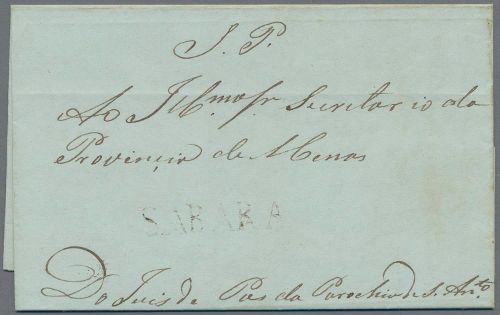 S. P.
Ao Illmo Sr Secretario da
Provincia de Menas
SABARA
Do Juis de Pas da Parochia de S. Anto